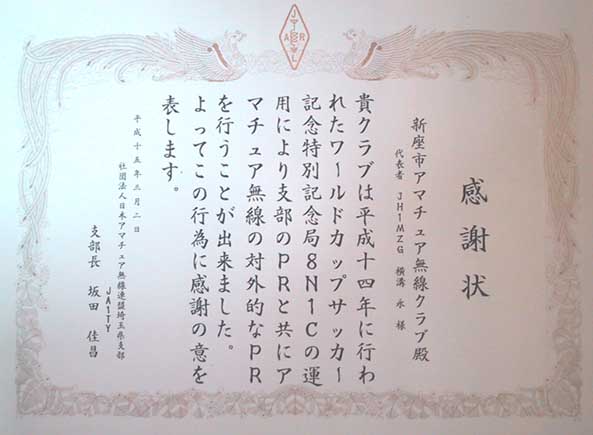 JARL
感謝状
新座市アマチュア無線クラブ殿
代表者 JH1MZG 横溝 永 様
貴クラブは平成十四年に行わ
れたワールドカップサッカー
記念特別記念局8N1Cの運
用により支部のPRと共にア
マチュア無線の対外的なPR
を行うことが出来ました。
よってこの行為に感謝の意を
表します。
平成十五年三月二日
社団法人日本アマチュア無線連盟埼玉県支部
JA1TY
支部長 坂田 佳昌